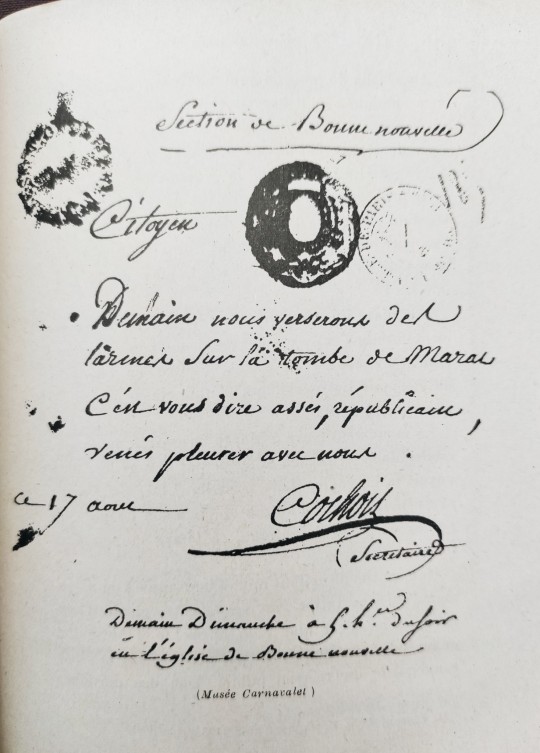 Section de Bonne nouvelle
Citoyen
Demain nous verserons des
larmes sur la tombe de Marat
C'est vous dire assés, républicain,
venés pleurer avec nous.
ce 17 aout
Secrétaire
Demain Dimanche à 5. h.res du soir
en l'église de Bonne nouvelle
(Musée Carnavalet)